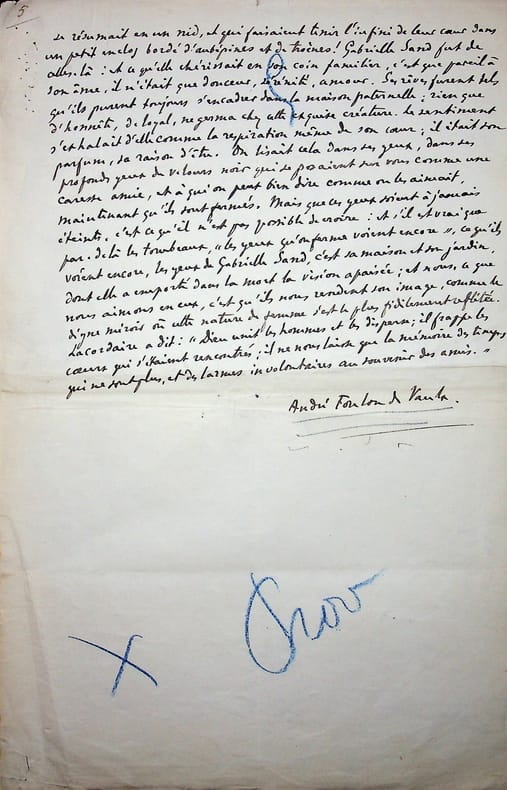 5
se résumait en un nid, et qui faisaient tenir l'infini de leur cœur dans
un petit enclos bordé d'aubépines et de troènes! Gabrielle Sand fut de
celles-là : et ce qu'elle chérissait en son coin familier, c'est que pareil à
son âme, il n'était que douceur, sérénité, amour. Ses rêves furent tels
qu'ils purent toujours s'encadrer dans la maison paternelle ; rien que
d'honnête, de loyal, ne germa chez cette exquise créature. Le sentiment
s'exhalait d'elle comme la respiration même de son cœur ; il était son
parfum, sa raison d'être. On lisait cela dans ses yeux, dans ses
profonds yeux de velours noir qui se posaient sur vous comme une
caresse amie, et à qui on peut bien dire comme on les aimait,
maintenant qu'ils sont fermés. Mais que ces yeux soient à jamais
éteints, c'est ce qu'il n'est pas possible de croire : et s'il est vrai que
par-delà les tombeaux, « les yeux qu'on ferme voient encore », ce qu'ils
voient encore, les yeux de Gabrielle Sand, c'est sa maison et son jardin
dont elle a emporté dans la mort la vision apaisée ; et nous, ce que
nous aimons en eux, c'est qu'ils nous rendent son image, comme le
digne miroir où cette nature de femme s'est le plus fidèlement reflétée.
Lacordaire a dit : « Dieu unit les hommes et les disperse ; il frappe les
cœurs qui s'étaient rencontrés ; il ne nous laisse que la mémoire des temps
qui ne sont plus, et des larmes involontaires au souvenir des amis. »
André Foulon de Vaulx.
X